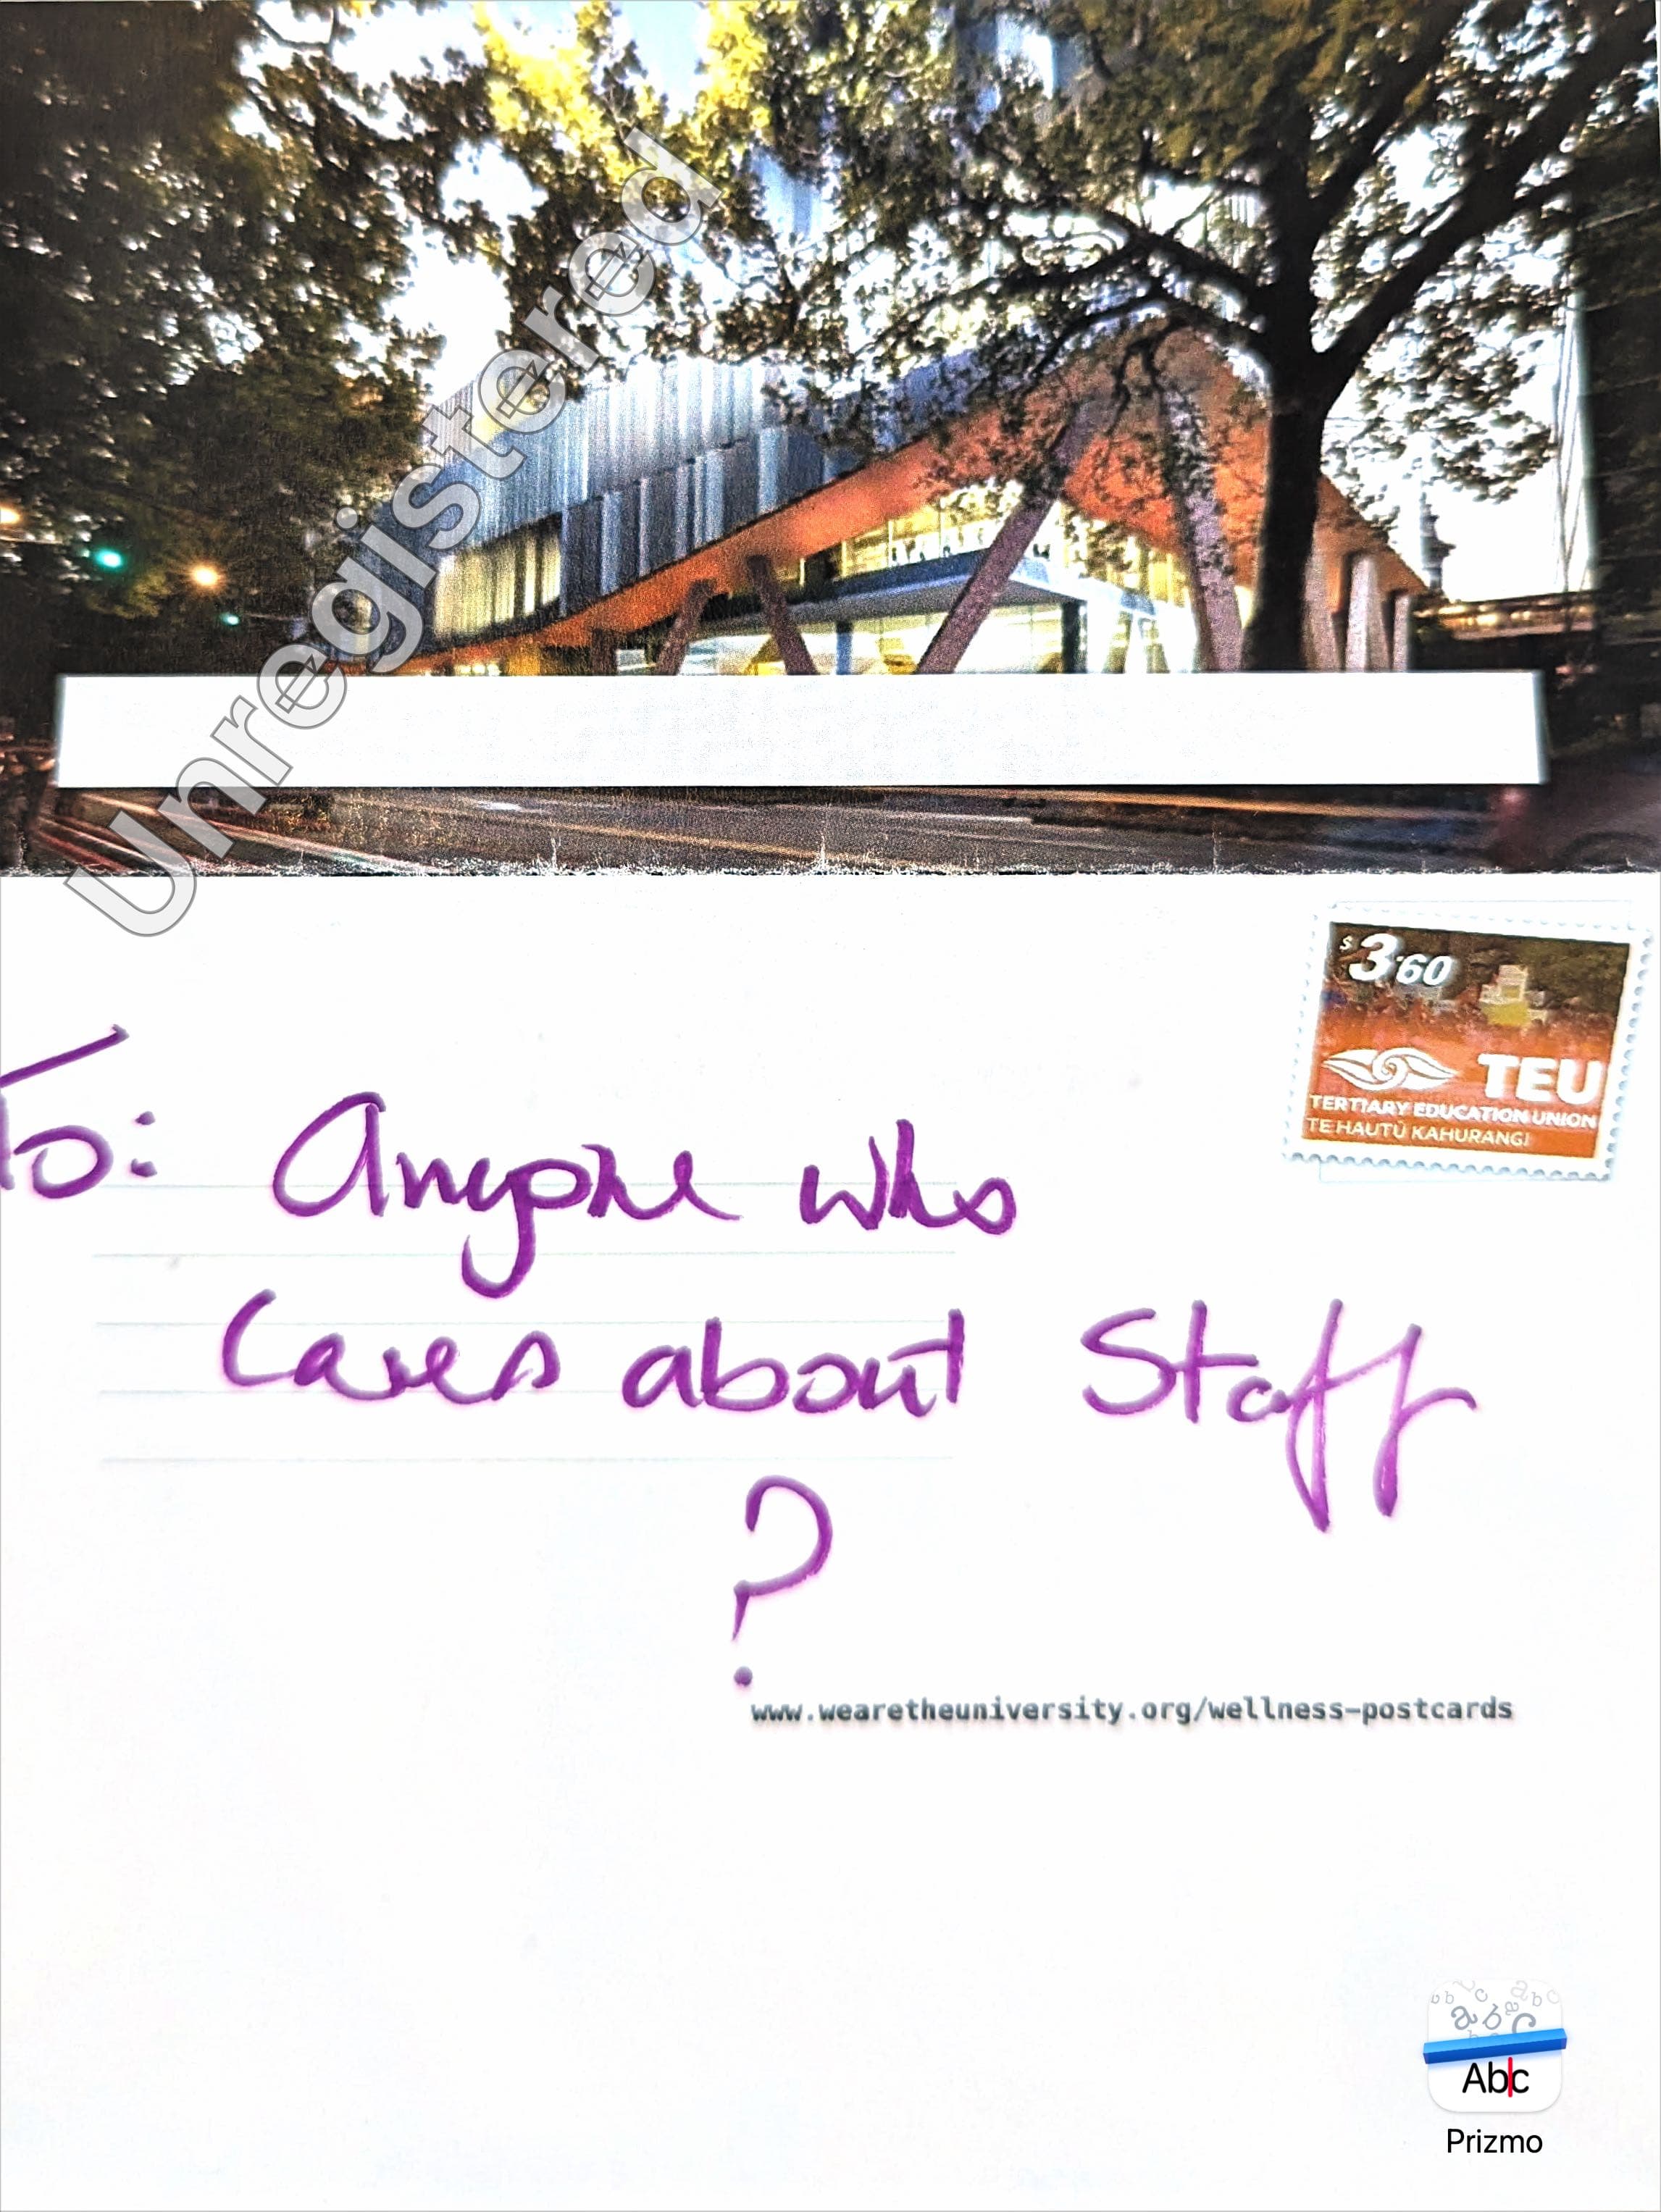 Unregistered
$3.60
TEU
TERTIARY EDUCATION UNION
TE HAUTŪ KAHURANGI
To: Anyone who
Cares about Staff
?
www.wearetheuniversity.org/wellness-postcards
Abc
Prizmo